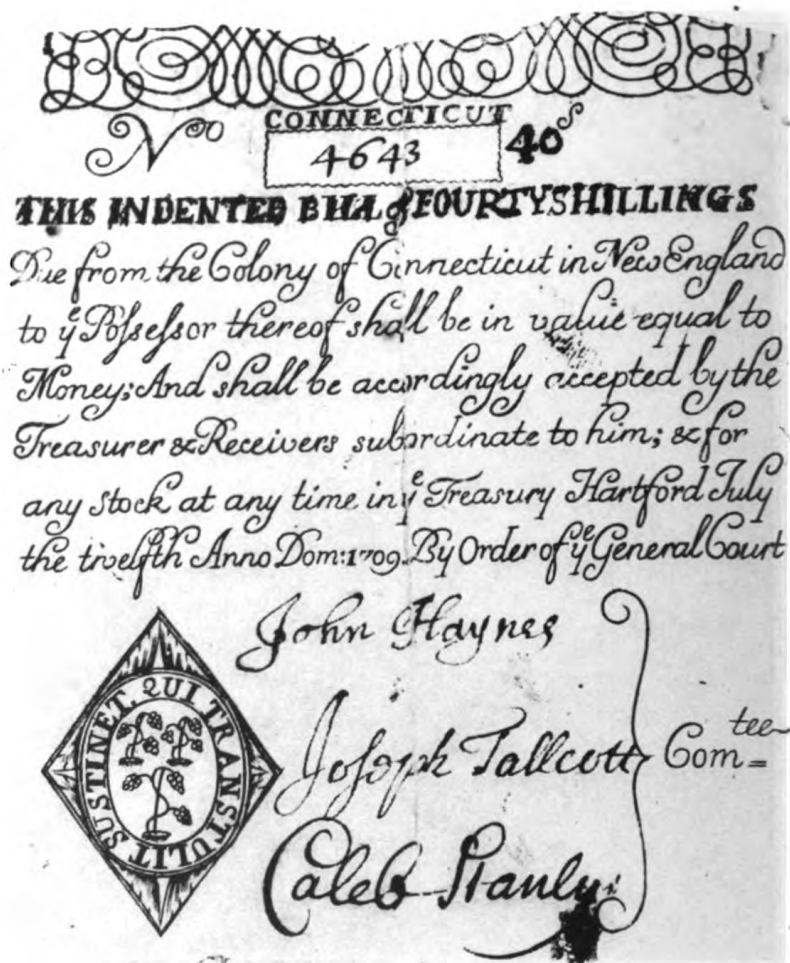 CONNECTICUT
No 4643 40s
THIS INDENTED BILL of FOURTYSHILLINGS
Due from the Colony of Connecticut in New England
to ye Poſseſsor thereof shall be in value equal to
Money; And shall be accordingly accepted by the
Treasurer & Receivers subordinate to him; & for
any Stock at any time in ye Treasury Hartford July
the twelfth Anno Dom: 1709. By Order of ye General Court
John Haynes
Joſeph Tallcott
Com=tee
Caleb Stanly
SUSTINET QUI TRANSTULIT